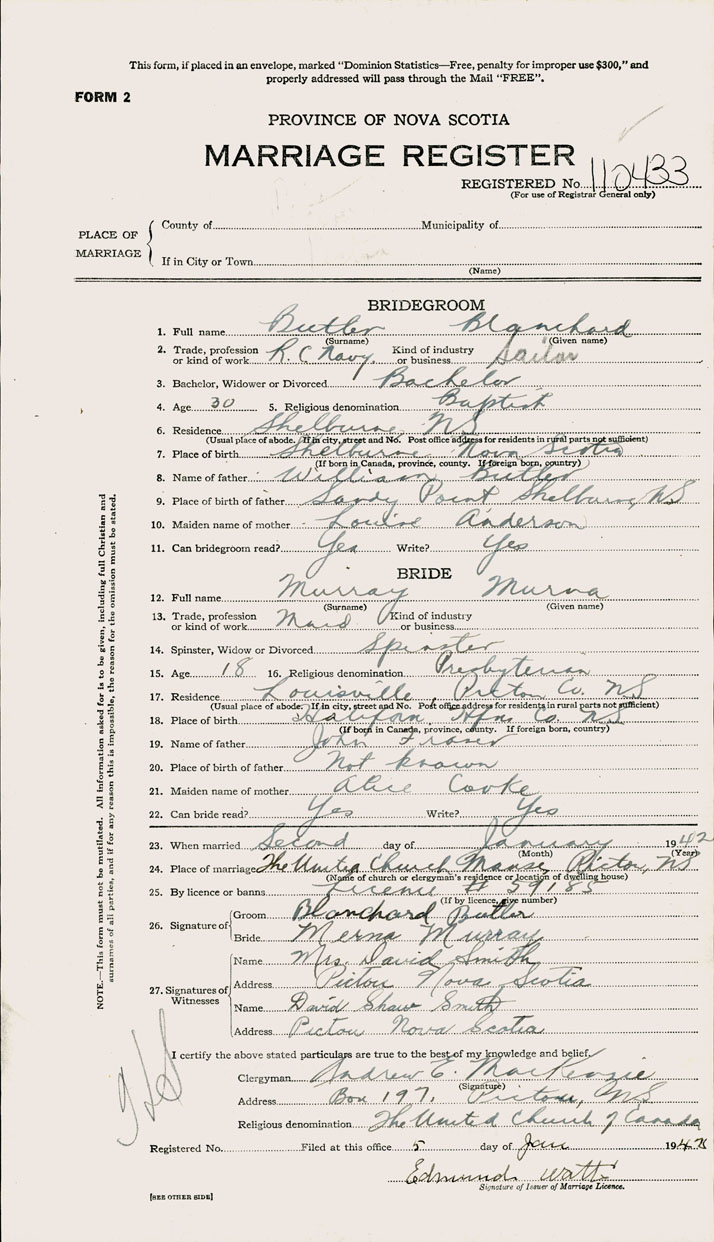 This form, if placed in an envelope, marked "Dominion Statistics—Free, penalty for improper use $300," and
properly addressed will pass through the Mail "FREE".
FORM 2
PROVINCE OF NOVA SCOTIA
MARRIAGE REGISTER
REGISTERED No. 110433
(For use of Registrar General only)
PLACE OF MARRIAGE
County of Municipality of
If in City or Town
(Name)
BRIDEGROOM
1. Full name Butler Blanchard
(Surname) (Given name)
2. Trade, profession or kind of work R. C Navy, Kind of industry or business Sailor
3. Bachelor, Widower or Divorced Bachelor
4. Age 30 5. Religious denomination Baptist
6. Residence Shelburne NS
(Usual place of abode. If in city, street and No. Post office address for residents in rural parts not sufficient)
7. Place of birth Shelburne Nova Scotia
(If born in Canada, province, county. If foreign born, country)
8. Name of father William Butler
9. Place of birth of father Sandy Point Shelburne, NS
10. Maiden name of mother Louise Anderson
11. Can bridegroom read? Yes Write? Yes
BRIDE
12. Full name Murray Murna
(Surname) (Given name)
13. Trade, profession or kind of work Maid Kind of industry or business
14. Spinster, Widow or Divorced Spinster
15. Age 18 16. Religious denomination Presbyterian
17. Residence Louisville, Pictou Co. NS
(Usual place of abode. If in city, street and No. Post office address for residents in rural parts not sufficient)
18. Place of birth Halifax Hfx Co. NS
(If born in Canada, province, county. If foreign born, country)
19. Name of father John Fraser
20. Place of birth of father Not known
21. Maiden name of mother Alice Cooke
22. Can bride read? Yes Write? Yes
23. When married Second day of January 1942
(Month) (Year)
24. Place of marriage The United Church Manse, Pictou, NS
(Name of church or clergyman's residence or location of dwelling house)
25. By licence or banns License # 59185
(If by licence, give number)
26. Signature of Groom Blanchard Butler
Bride Merna Murray
27. Signatures of Witnesses
Name Mrs. David Smith
Address Pictou Nova Scotia
Name David Shaw Smith
Address Pictou Nova Scotia
I certify the above stated particulars are true to the best of my knowledge and belief.
Clergyman Andrew E. MacKenzie
(Signature)
Address Box 197, Pictou, NS
Religious denomination The United Church of Canada
Registered No. Filed at this office 5 day of Jan 1942
Edmund Watt
Signature of Issuer of Marriage Licence.
[SEE OTHER SIDE]
NOTE.—This form must not be mutilated. All information asked for is to be given, including full Christian and
surnames of all parties, and if for any reason this is impossible, the reason for the omission must be stated.